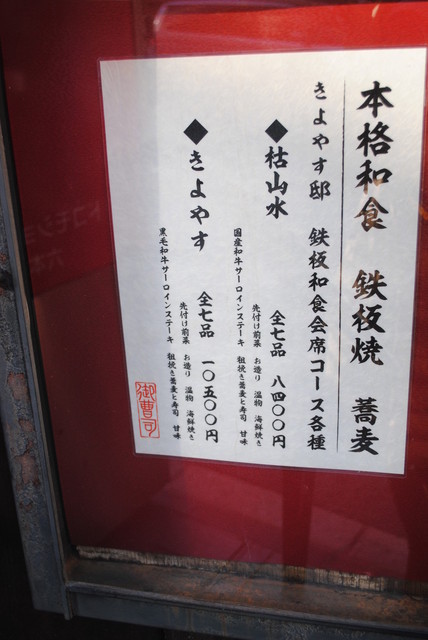 本格和食 鉄板焼 蕎麦
きよやす邸 鉄板和食会席コース各種
◆枯山水 全七品 八四〇〇円
先付け前菜 お造り 温物 海鮮焼き
国産和牛サーロインステーキ 粗挽き蕎麦と寿司 甘味
◆きよやす 全七品 一〇五〇〇円
先付け前菜 お造り 温物 海鮮焼き
黒毛和牛サーロインステーキ 粗挽き蕎麦と寿司 甘味
御曹司